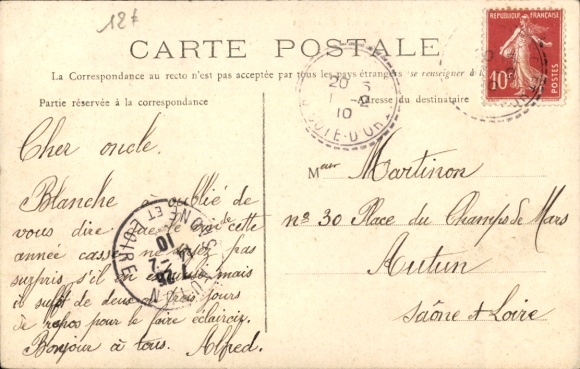 12f
CARTE POSTALE
La Correspondance au recto n'est pas acceptée par tous les pays étrangers (se renseigner à la
Partie réservée à la correspondance
Adresse du destinataire
REPUBLIQUE FRANÇAISE
10c
POSTES
20
10
COTE-D'OR
Cher oncle.
Blanche a oublié de
vous dire que le vin de cette
année casse ne soyez pas
surpris s'il en mais
il suffit de deux ou trois jours
de repos pour le faire éclaircir.
Bonjour à tous. Alfred.
AUTUN
SAONE ET LOIRE
10
Meur Martinon
no 30 Place du Champs de Mars
Autun
Saône & Loire